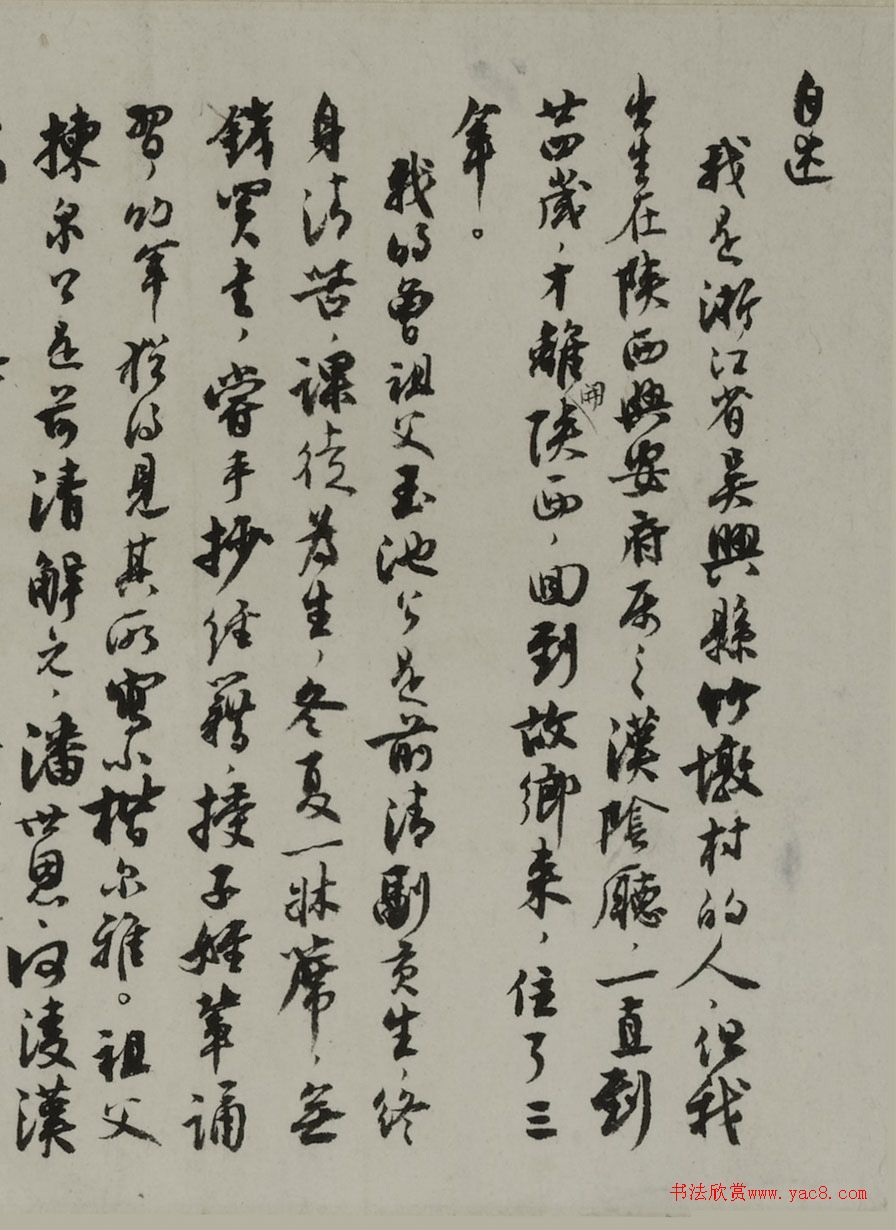 自述
我是浙江省吳興縣竹墩村的人，但我
出生在陝西興安府屬之漢陰廳，一直到
廿四歲，才離開陝西，回到故鄉來，住了三
年。
我的曾祖父玉池公是前清副貢生，終
身清苦，課徒為生，冬夏一牀席，無
錢買書，嘗手抄經籍，授子姪輩誦
習，幼年猶得見其所寫小楷尔雅。祖父
揀泉公是前清解元，潘世恩、何淩漢
书法欣赏www.yac8.com